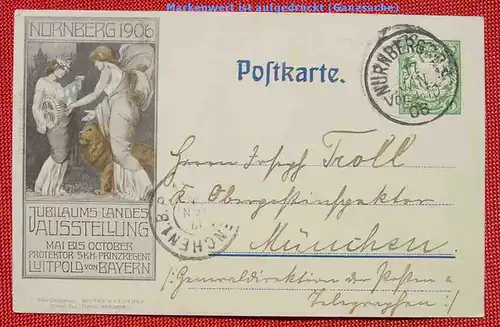 Markenwert ist aufgedruckt (Ganzsache)
NÜRNBERG 1906
Postkarte.
NÜRNBERG
06
JUBILÄUMS-LANDES
AUSSTELLUNG
MAI BIS OCTOBER
PROTEKTOR S.K.H. PRINZREGENT
LUITPOLD VON BAYERN
Herrn Joseph Troll
K. Obergestinspektor
München.
/: Generaldirektion der Posten &
Telegraphen :/